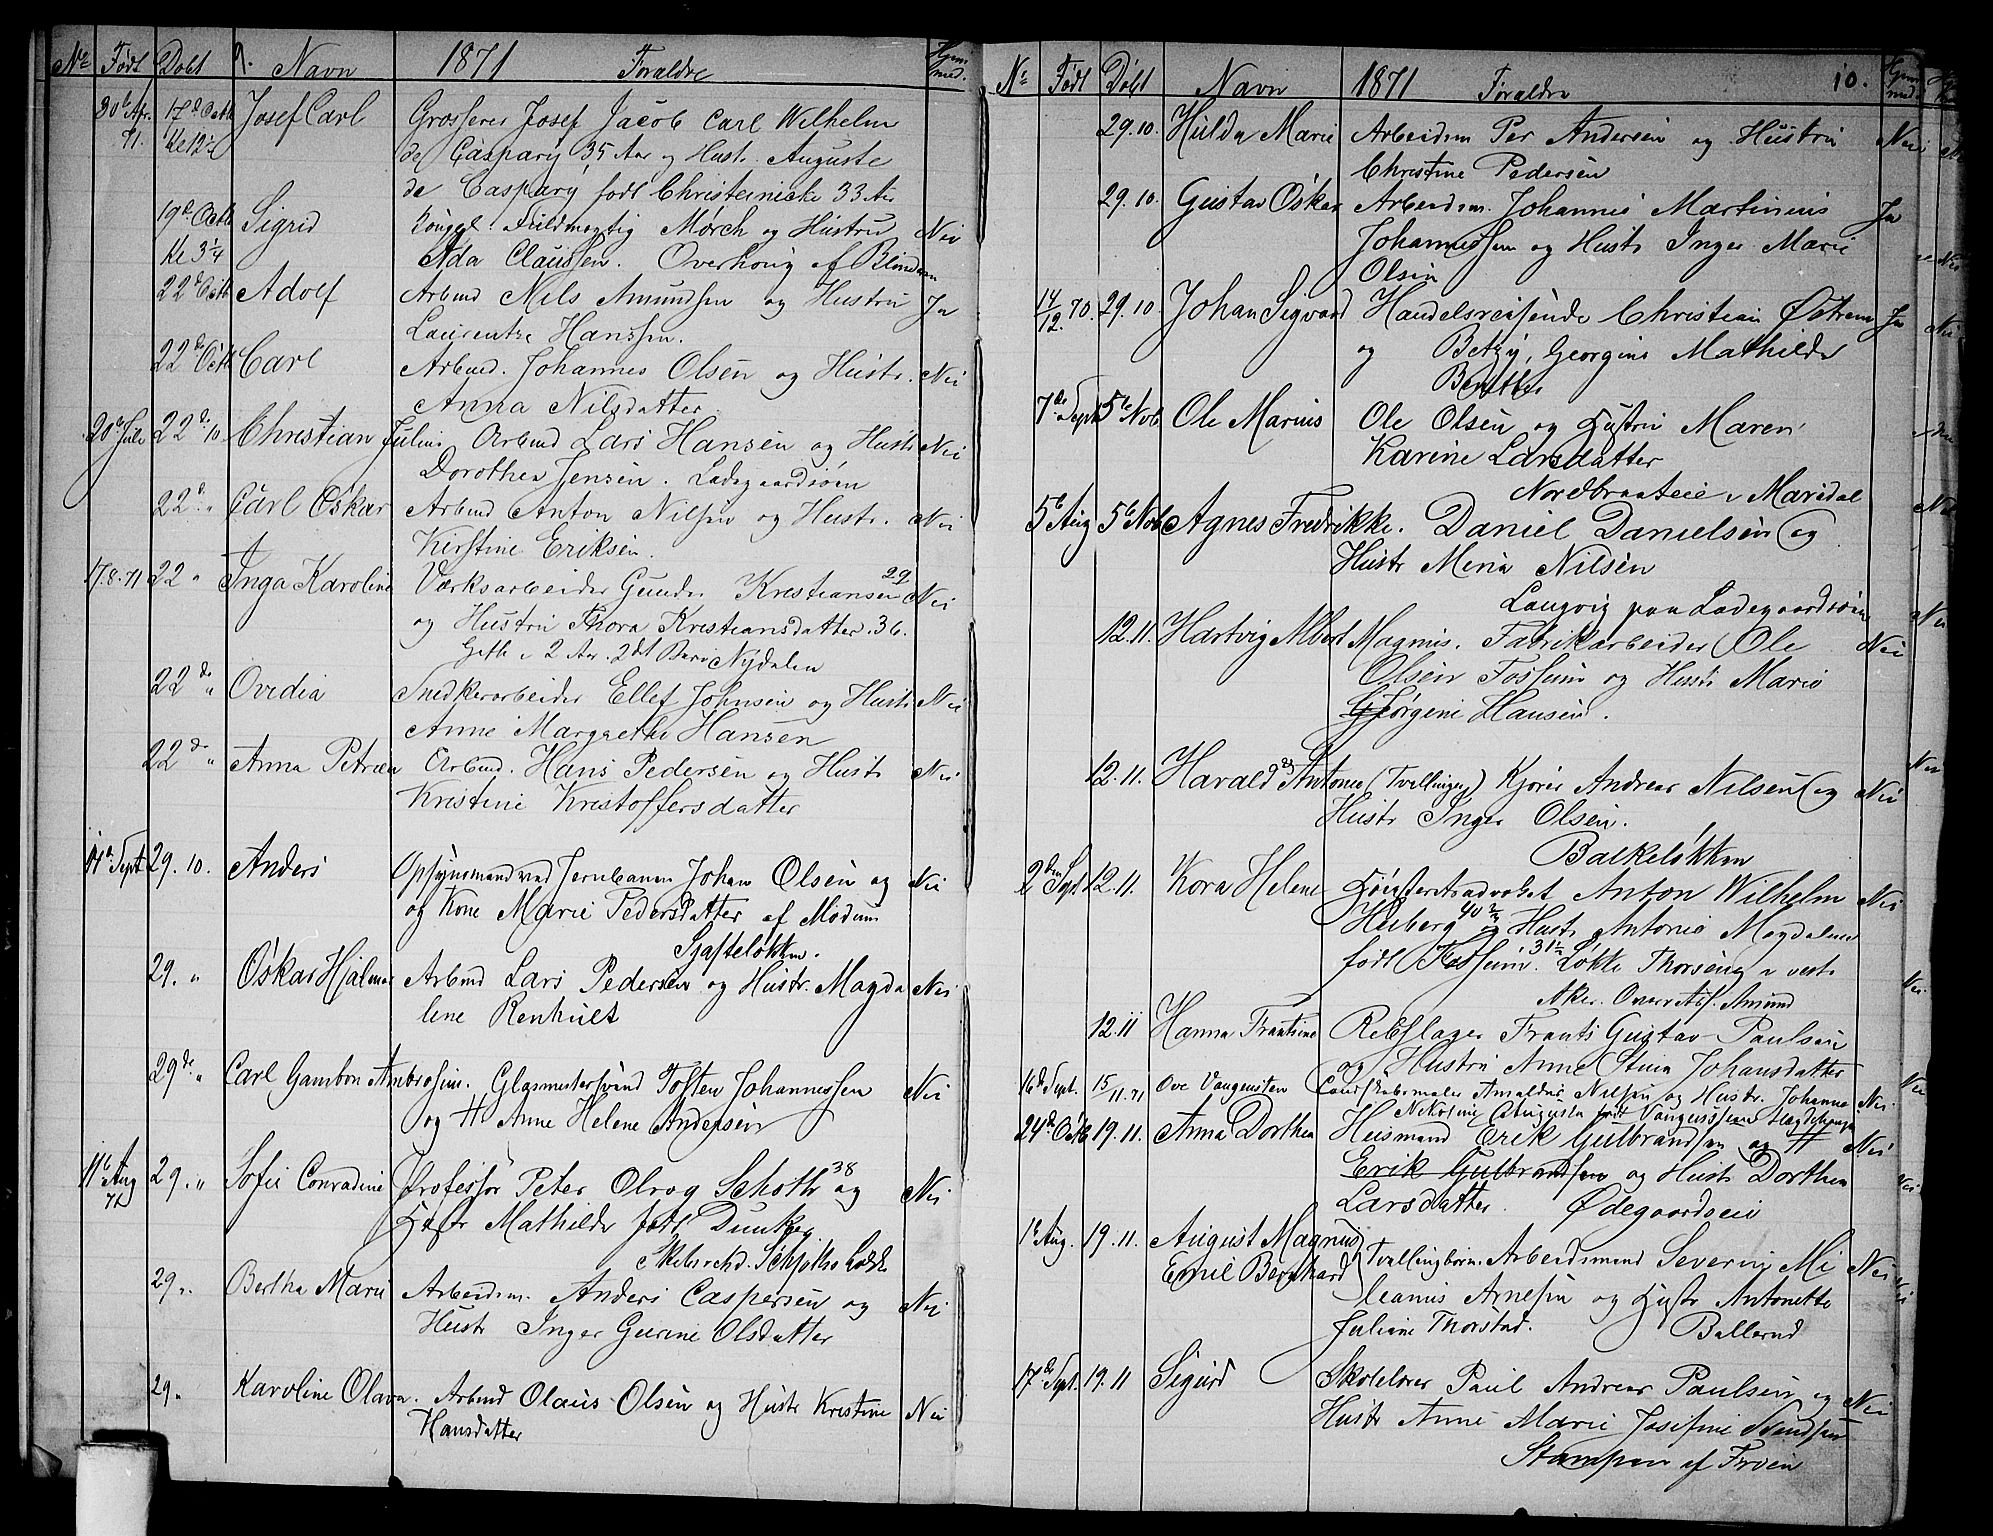 No Født Døbt 9. Navn 1871 Forældre Hjem med.
30te Apr. 71. 17de Octb Kl 12½ Josef Carl Grosserer Josef Jacob Carl Wilhelm
de Caspary 35 Aar og Hustr. Auguste
de Caspary født Christernicke 33 Aar
19de Octb Kl 3¼ Sigrid Kongel. Fuldmægtig Mørch og Hustru Nei
Ada Claussen. Overkong af Blindern
22de Octb Adolf Arbmd Nils Amundsen og Hustru Ja
Laurentze Hanssen.
22de Octb Carl Arbmd. Johannes Olsen og Hustr. Nei
Anna Nilsdatter.
20de Juli 22de 10. Christian Julius Arbmd Lars Hansen og Hustr Nei
Dorothea Jensen. Ladegaardsøen
22d " Carl Oskar Arbmd Anton Nilsen og Hustr. Nei
Kirstine Eriksen.
17.8.71 22 " Inga Karoline Værksarbeider Gunder Kristiansen 29 Nei
og Hustru Thora Kristiansdatter. 36.
Gift i 2 Aar. 2det Barn Nydalen
22de " Ovidia Snedkerarbeider Ellef Johnsen og Hustr Nei
Anne Margrethe Hansen
22de " Anna Petrea Arbmd. Hans Pedersen og Hustr Nei
Kristine Kristoffersdatter
14de Sept 29. 10. Anders Opsynsmand ved Jernbanen Johan Olsen og Nei
og Kone Marie Pedersdatter af Modum
29. " Oskar Hjalmar Arbmd Lars Pedersen og Hustr. Magda Nei
lene Renhult
29de " Carl Gambon Ambrosius. Glasmestersvend Tosten Johannessen Nei
og H Anne Helene Andersen
11te Aug 71 29. " Sofie Conradine Professor Peter Olrog Schøtt 38 og Nei
Hustr Mathilde født Dunker
29 ". Bertha Marie Arbeidsm. Anders Caspersen og Nei
Hustr Inger Gurine Olsdatter
29. Karoline Olava. Arbmd Olaus Olsen og Hustr Kristine Nei
Hansdatter
No Født Døbt Navn 1871 Forældre 10.
29. 10. Hulda Marie Arbeidsm Per Andersen og Hustru Nei
Christine Pedersen
29. 10. Gustav Oskar Arbeidsm. Johannes Martinius Ja
Johannessen og Hustr Inger Marie
Olsen
14/12. 70. 29. 10 Johan Sigvard Handelsreisende Christian Østrem Ja
og Betzy, Georgine Mathilde
7de Sept 5te Nob Ole Marius Ole Olsen og Hustru Maren
Karine Larsdatter
Nordbraateie i Maridal
5te Aug 5te Nob Agnes Fredrikke. Daniel Danielsen og
Hustr Meria Nilsen
Langvig paa Ladegaardsøen
12. 11. Hartvig Albert Magnus. Fabrikarbeider Ole Nei
Olsen Fossum og Hustr Marie
Jørgine Hansen.
12. 11. Harald & Antonie (Tvillinger) Kjører Andreas Nilsen og Nei
Hustr Inger Olsen.
Balkeløkken
2den Sept 12. 11. Kora Helene Høiesteretsadvokat Anton Wilhelm Nei
Heiberg 40 2/3 og Hustr Antonie Magdalene
født Fossum. 31½ Løkke Thorseng i vest
Aker.
12. 11 Hanna Frantsine Rebslager Frants Gustav Paulsen
og Hustru Anne Stina Johansdatter
16de Sept. 15/11.71 Ove Vangensten Cand. Amaldus Nilsen og Hustr. Johanne Nei.
Nikoline Augusta født
24de Octb 19. 11. Anna Dorthea Huismand Erik Gulbrandsen og H Nei
Erik Gulbrandsen og Hustr Dorthea
Larsdatter. Ødegaardseie
1te Aug. 19. 11. August Magnus
Emil Bernhard } Tvillingbørn. Arbeidsmand Severin Mi Nei
leanus Arnesen og Hustr Antonette
Juliane Thorstad. Ballerud
17de Sept. 19. 11 Sigurd Skolelærer Paul Andreas Paulsen og Nei
Hustr Anne Marie Josefine Svendsen
Stampen af Frøen